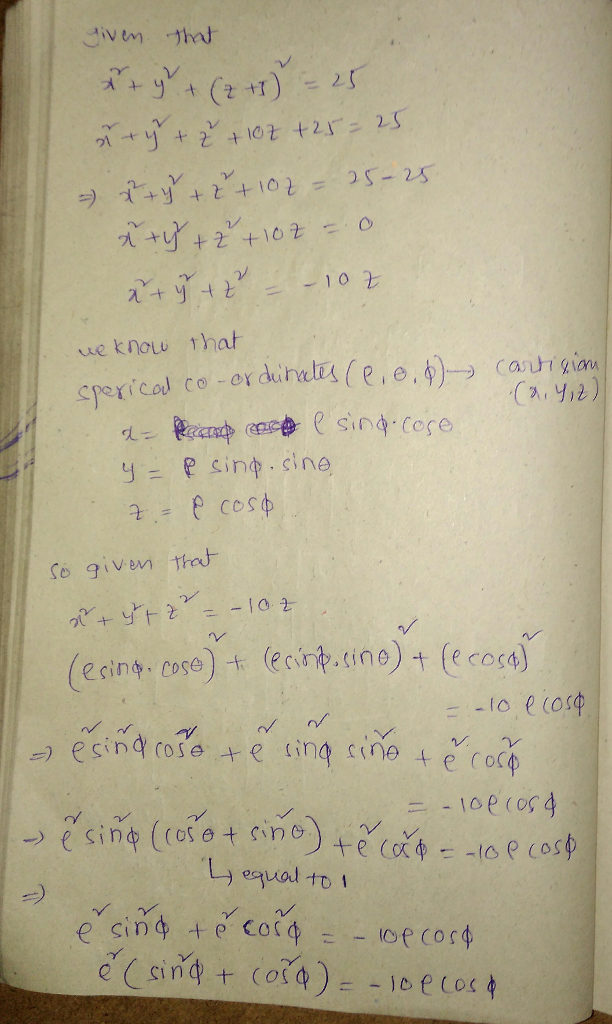 given that
x² + y² + (z+5)² = 25
x² + y² + z² + 10z + 25 = 25
⇒ x² + y² + z² + 10z = 25 - 25
x² + y² + z² + 10z = 0
x² + y² + z² = -10z
we know that
sperical co-ordinates (ρ, θ, φ) → cartisian
(x, y, z)
x = ρ sinφ·cosθ
y = ρ sinφ·sinθ
z = ρ cosφ
so given that
x² + y² + z² = -10z
(ρsinφ·cosθ)² + (ρsinφ·sinθ)² + (ρcosφ)²
= -10 ρcosφ
⇒ ρ²sin²φ cos²θ + ρ² sin²φ sin²θ + ρ² cos²φ
= -10ρcosφ
⇒ ρ² sin²φ (cos²θ + sin²θ) + ρ² cos²φ = -10ρ cosφ
↳ equal to 1
⇒
ρ² sin²φ + ρ² cos²φ = -10ρcosφ
ρ² (sin²φ + cos²φ) = -10ρcosφ